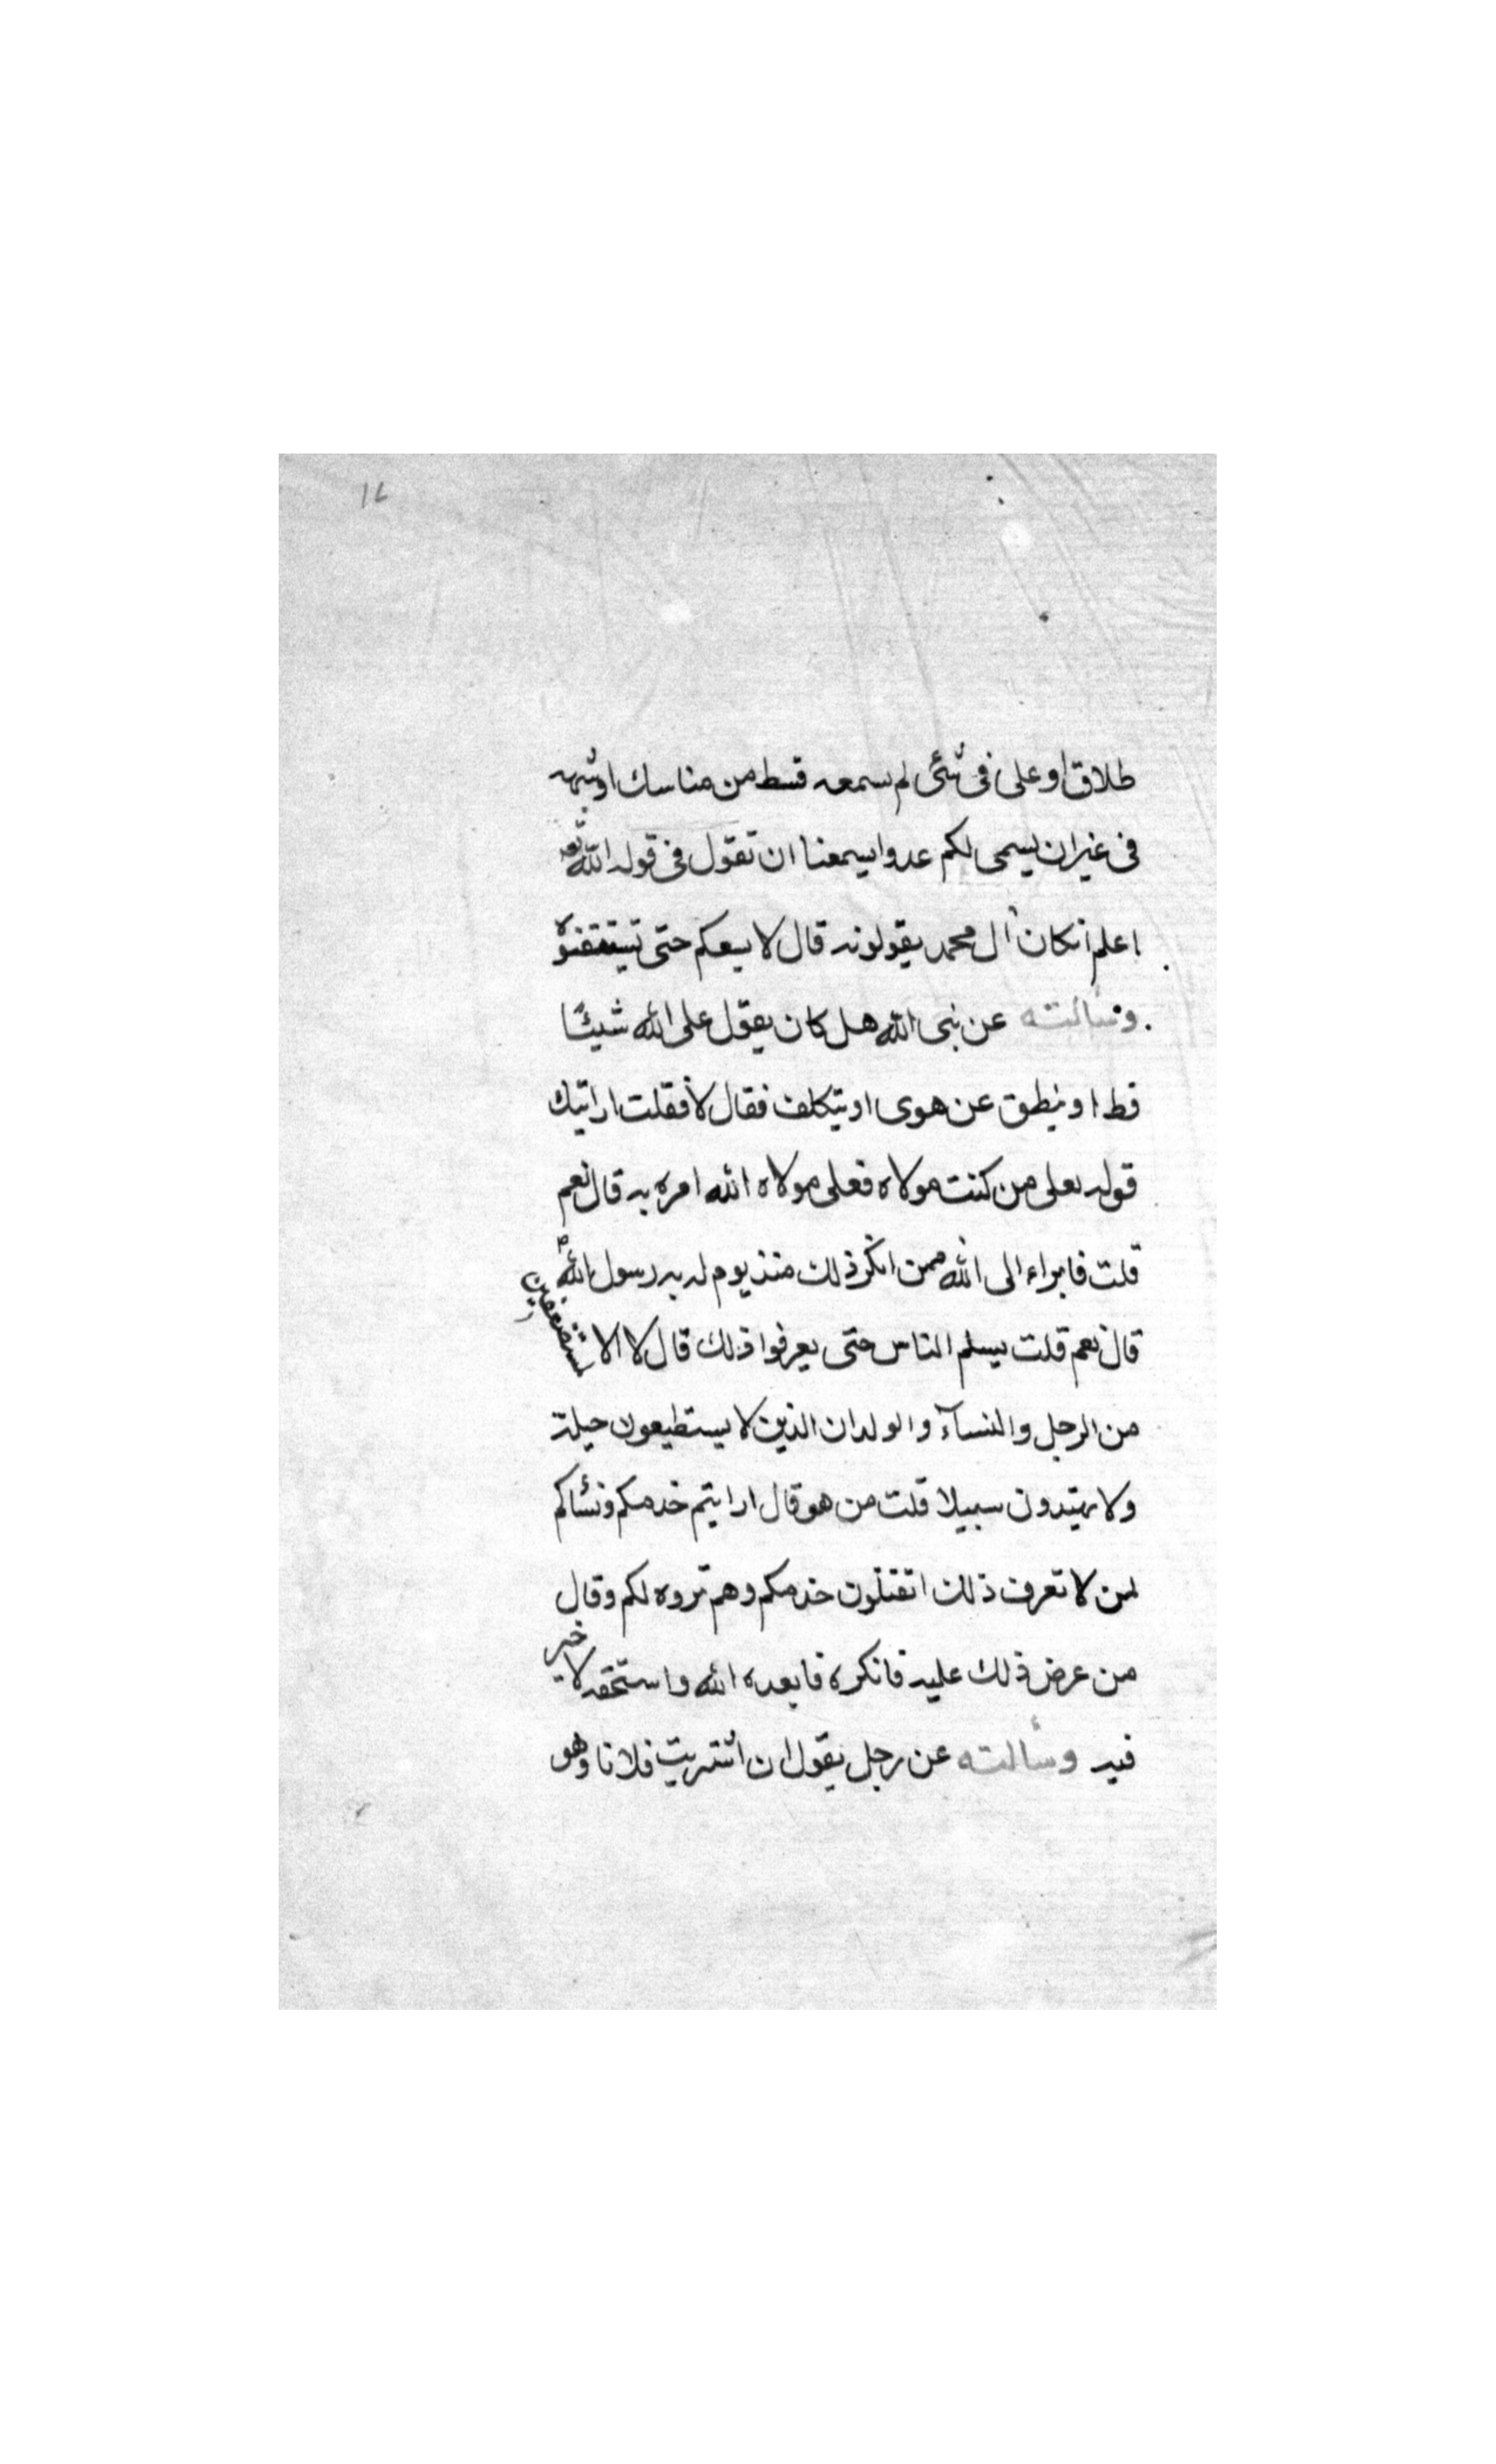 طلاق او على فى شئى لم يسمعه قسط من مناسك او شبهه
فى غير ان يسمى لكم عدوا يسمعنا ان تقول فى قوله الله تع
اعلم انكان ال محمد يقولونه قال لا يسعكم حتى تستيقنوه
وسألته عن نبى الله هل كان يقول على الله شيئًا
قط او ينطق عن هوى او يتكلف فقال لا فقلت ارايتك
قوله لعلى من كنت مولاه فعلى مولاه الله امره به قال نعم
قلت فابراء الى الله ممن انكر ذلك منذ يوم له به رسول الله ص
قال نعم قلت يسلم الناس حتى يعرفوا ذلك قال لا الا المستضعفين
من الرجل والنسآء والولدان الذين لا يستطيعون حيلة
ولا يهتدون سبيلا قلت من هو قال ارايتم خدمكم ونسًاكم
لمن لا تعرف ذلك اتقتلون خدمكم وهم تروه لكم وقال
من عرض ذلك عليه فانكره فابعده الله واستحقه لا خير
فيه وسألته عن رجل يقول ان اشتريت فلانا وهو